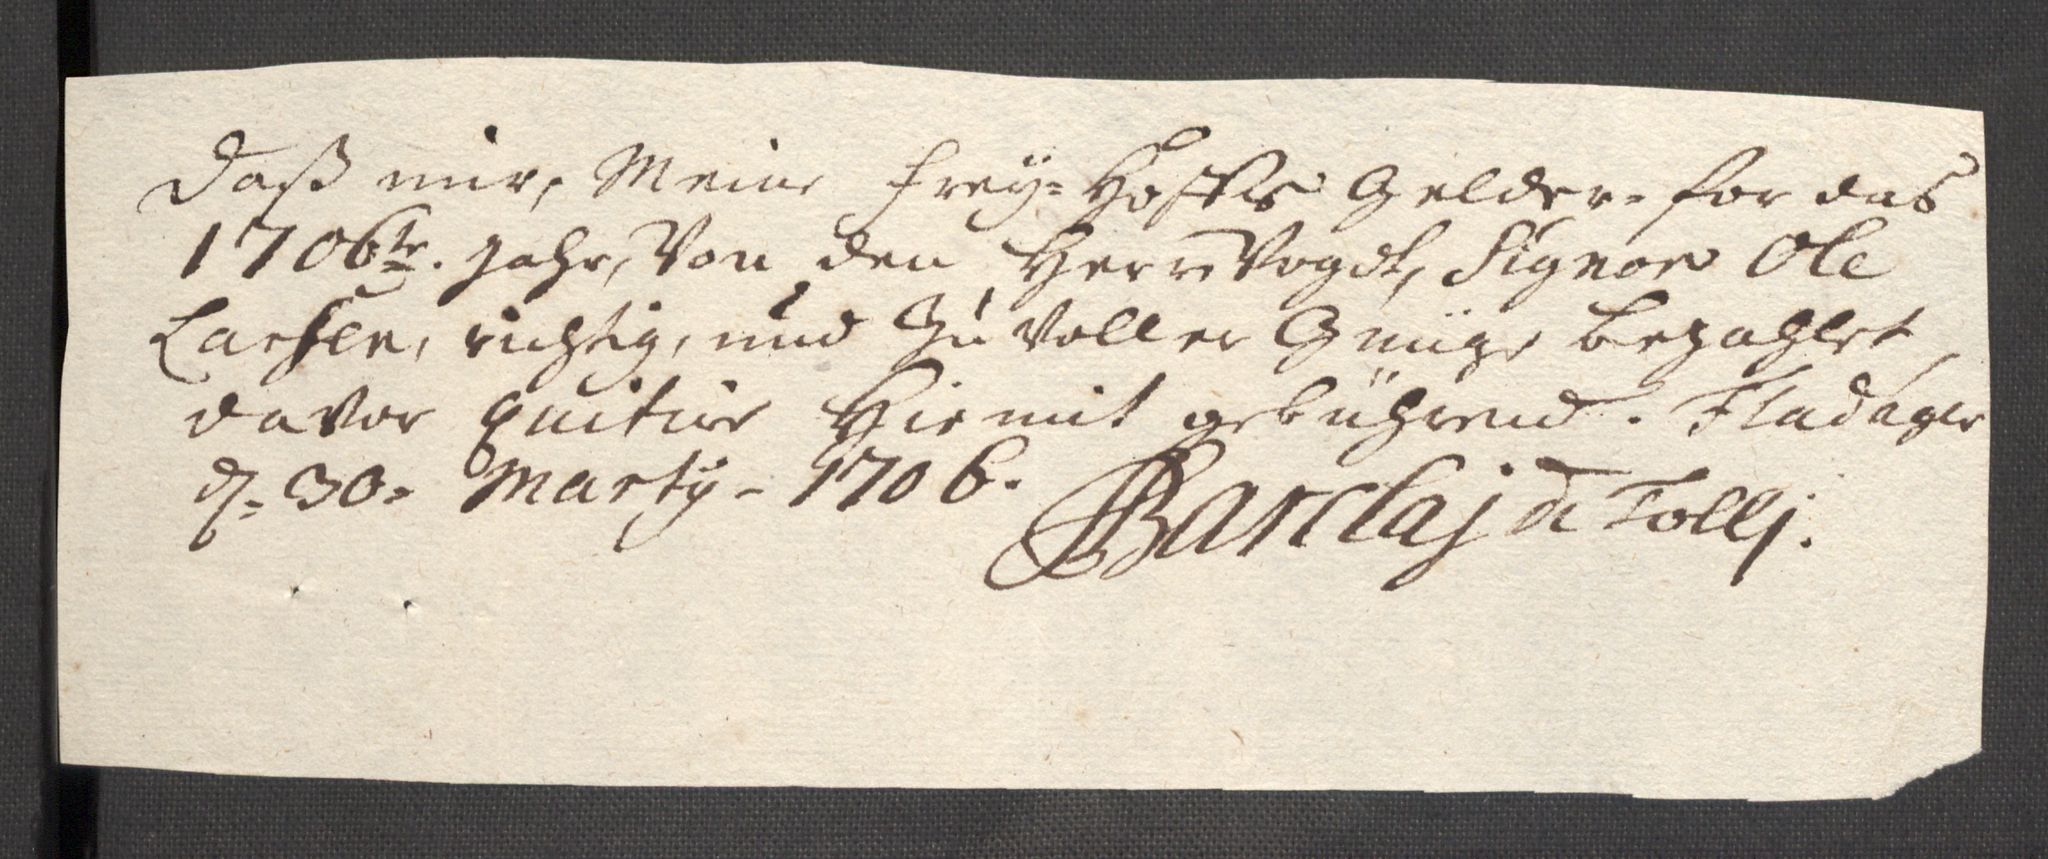 Daß mir, Meine Frey= Hoffs Gelder. for das
1706te. Jahr, Von den Herrn Vogdt, Signor Ole
Larsen, richtig, und Zu voller Gnüge bezahlet,
davor quitire Hiemit gebührend. Fladager
d. 30. Marty - 1706.
Barclaj de Tollj.